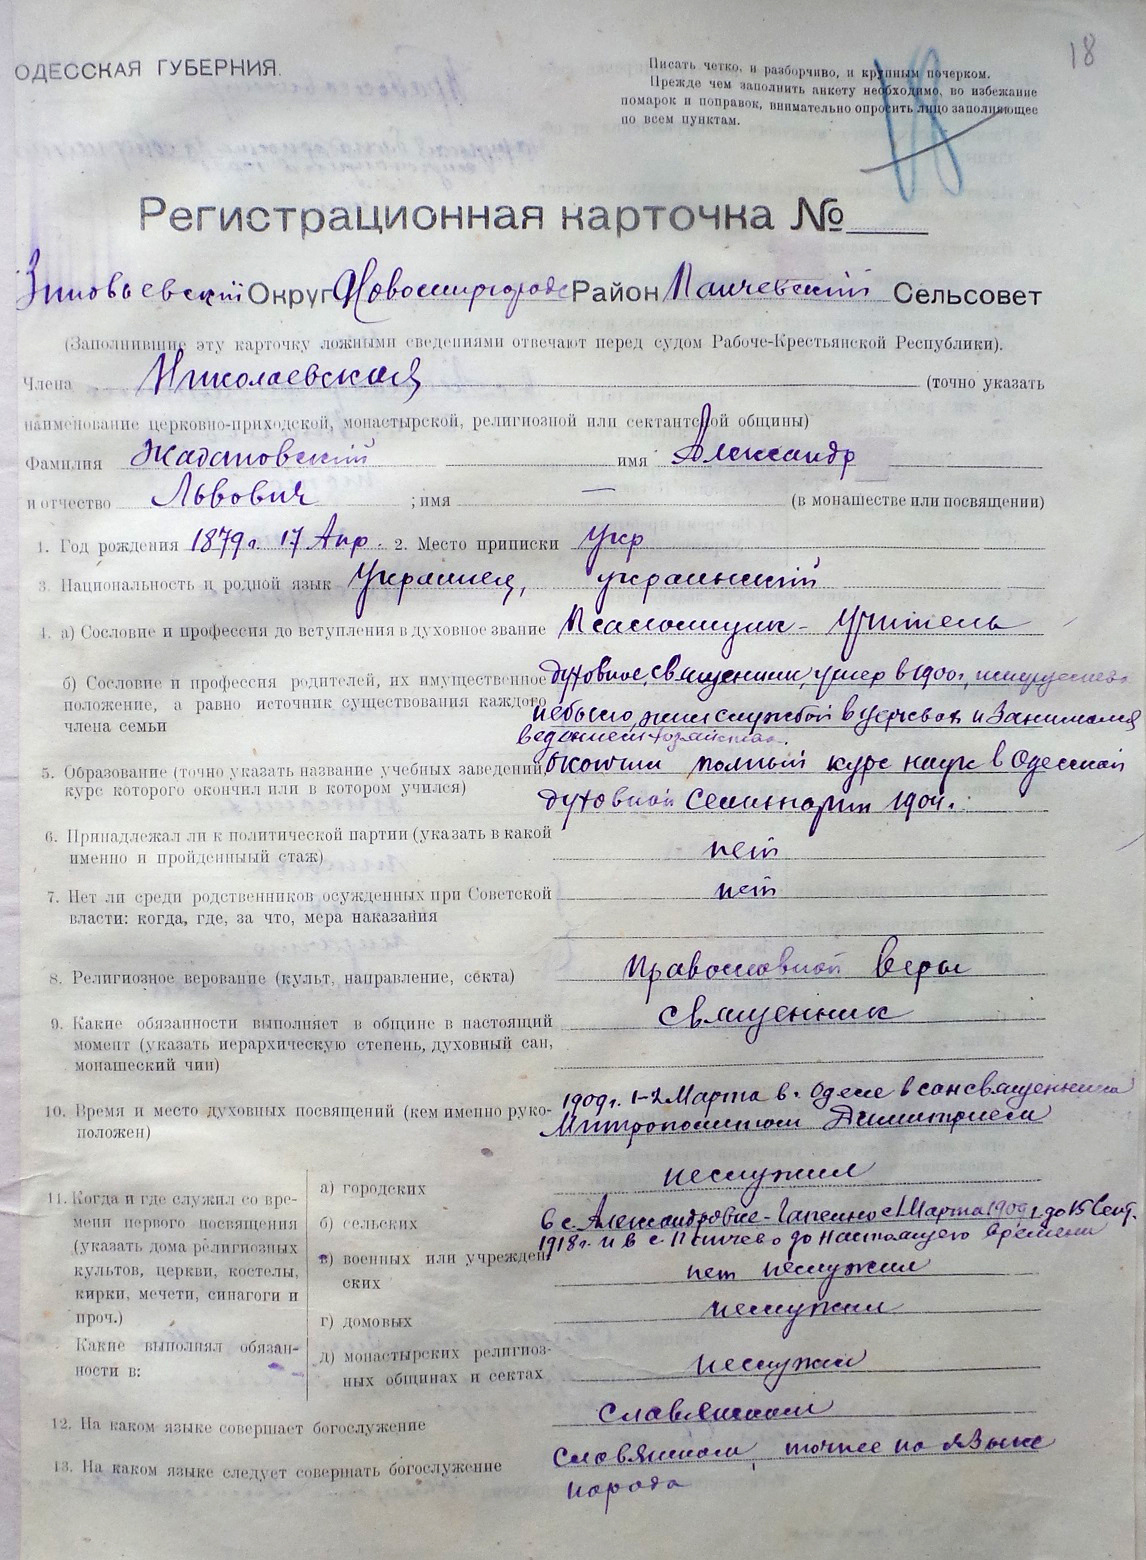 18
ОДЕССКАЯ ГУБЕРНИЯ.
Писать четко, и разборчиво, и крупным почерком.
Прежде чем заполнить анкету необходимо, во избежание
помарок и поправок, внимательно опросить лицо заполняющее
по всем пунктам.
18
Регистрационная карточка №
Зиновьевский Округ Новомиргородс Район Панчевский Сельсовет
(Заполнившие эту карточку ложными сведениями отвечают перед судом Рабоче-Крестьянской Республики).
Члена Николаевская (точно указать
наименование церковно-приходской, монастырской, религиозной или сектантской общины)
Фамилия Ждановский имя Александр
и отчество Львович ; имя — (в монашестве или посвящении)
1. Год рождения 1879 г. 17 Апр. 2. Место приписки Укр
3. Национальность и родной язык Украинец, украинский
4. а) Сословие и профессия до вступления в духовное звание Псаломщик - Учитель
б) Сословие и профессия родителей, их имущественное духовное, священник, умер в 1900 г.,
положение, а равно источник существования каждого небыло, жил службой в церквах и занимался
члена семьи ведением хозяйства.
5. Образование (точно указать название учебных заведений, окончил полный курс наук в Одесской
курс которого окончил или в котором учился) духовной Семинарии 1904.
6. Принадлежал ли к политической партии (указать в какой
именно и пройденныый стаж) нет
7. Нет ли среди родственников осужденных при Советской нет
власти: когда, где, за что, мера наказания
8. Религиозное верование (культ, направление, секта) православной веры
9. Какие обязанности выполняет в общине в настоящий священник
момент (указать иерархическую степень, духовный сан,
монашеский чин)
10. Время и место духовных посвящений (кем именно руко- 1909 г. 1-2 Марта в г. Одессе в сан священника
положен) Митрополитом Димитрием
11. Когда и где служил со вре-
мени первого посвящения
(указать дома религиозных
культов, церкви, костелы,
кирки, мечети, синагоги и
проч.)
Какие выполнял обязан-
ности в:
а) городских неслужил
б) сельских в с. Александровке - с 1 Марта 1909 г. до 15 Сент.
1918 г. и в с. Панчево до настоящего времени
в) военных или учрежден-
ских нет неслужил
г) домовых неслужил
д) монастырских религиоз-
ных общинах и сектах неслужил
12. На каком языке совершает богослужение славянском
13. На каком языке следует совершать богослужение словянском, точнее на языке
народа